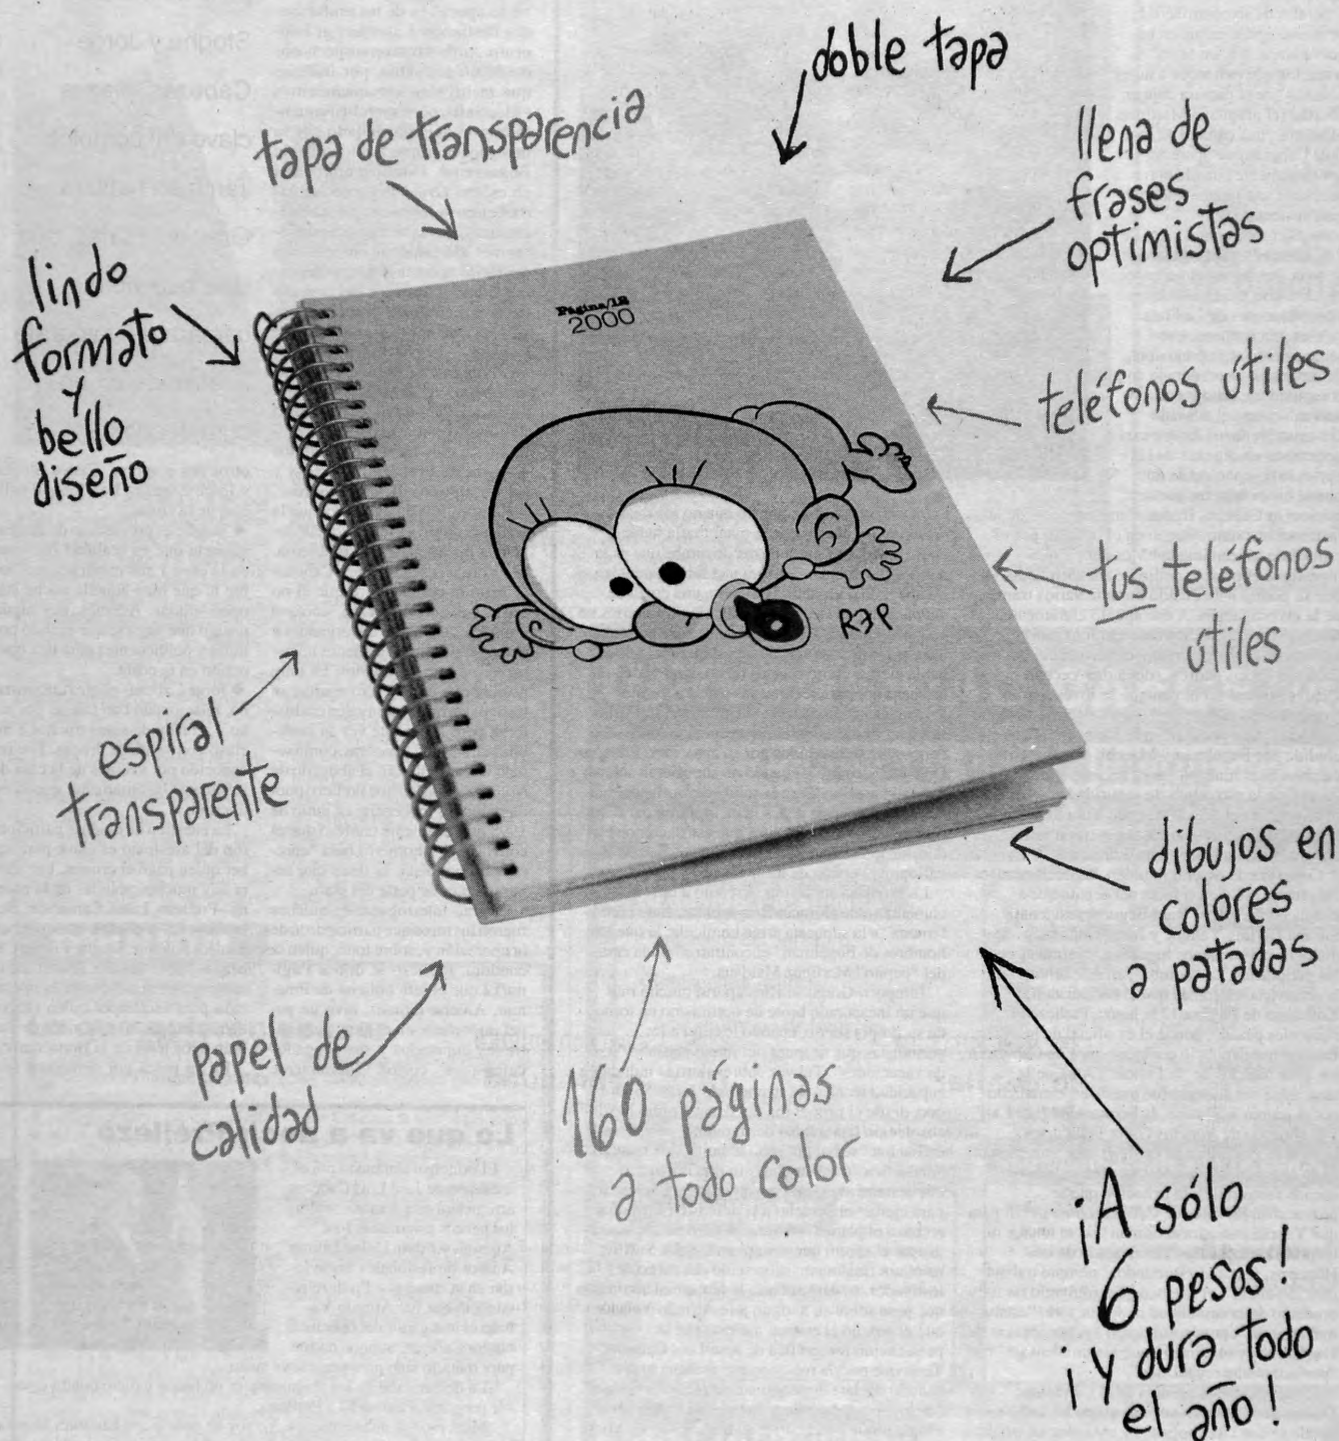 doble tapa
tapa de transparencia
llena de
frases
optimistas
lindo
formato
y
bello
diseño
Página/12
2000
teléfonos útiles
REP
tus teléfonos
útiles
espiral
transparente
dibujos en
colores
a patadas
papel de
calidad
160 páginas
a todo color
¡A sólo
6 pesos!
¡y dura todo
el año!